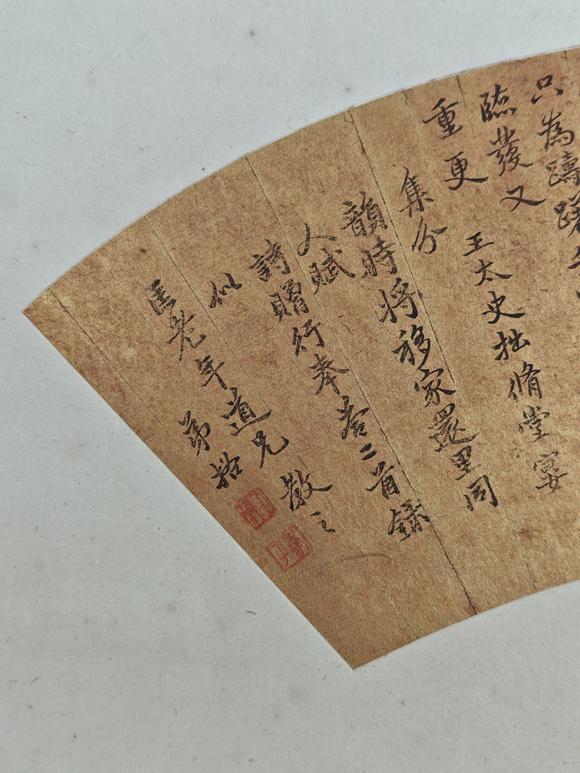 只為躊躇
臨發又
重更 王太史拙脩堂宴
集分
韻時將移家還里同
人賦
詩贈行奉答二首錄
似
匡老年道兄 教之
弟